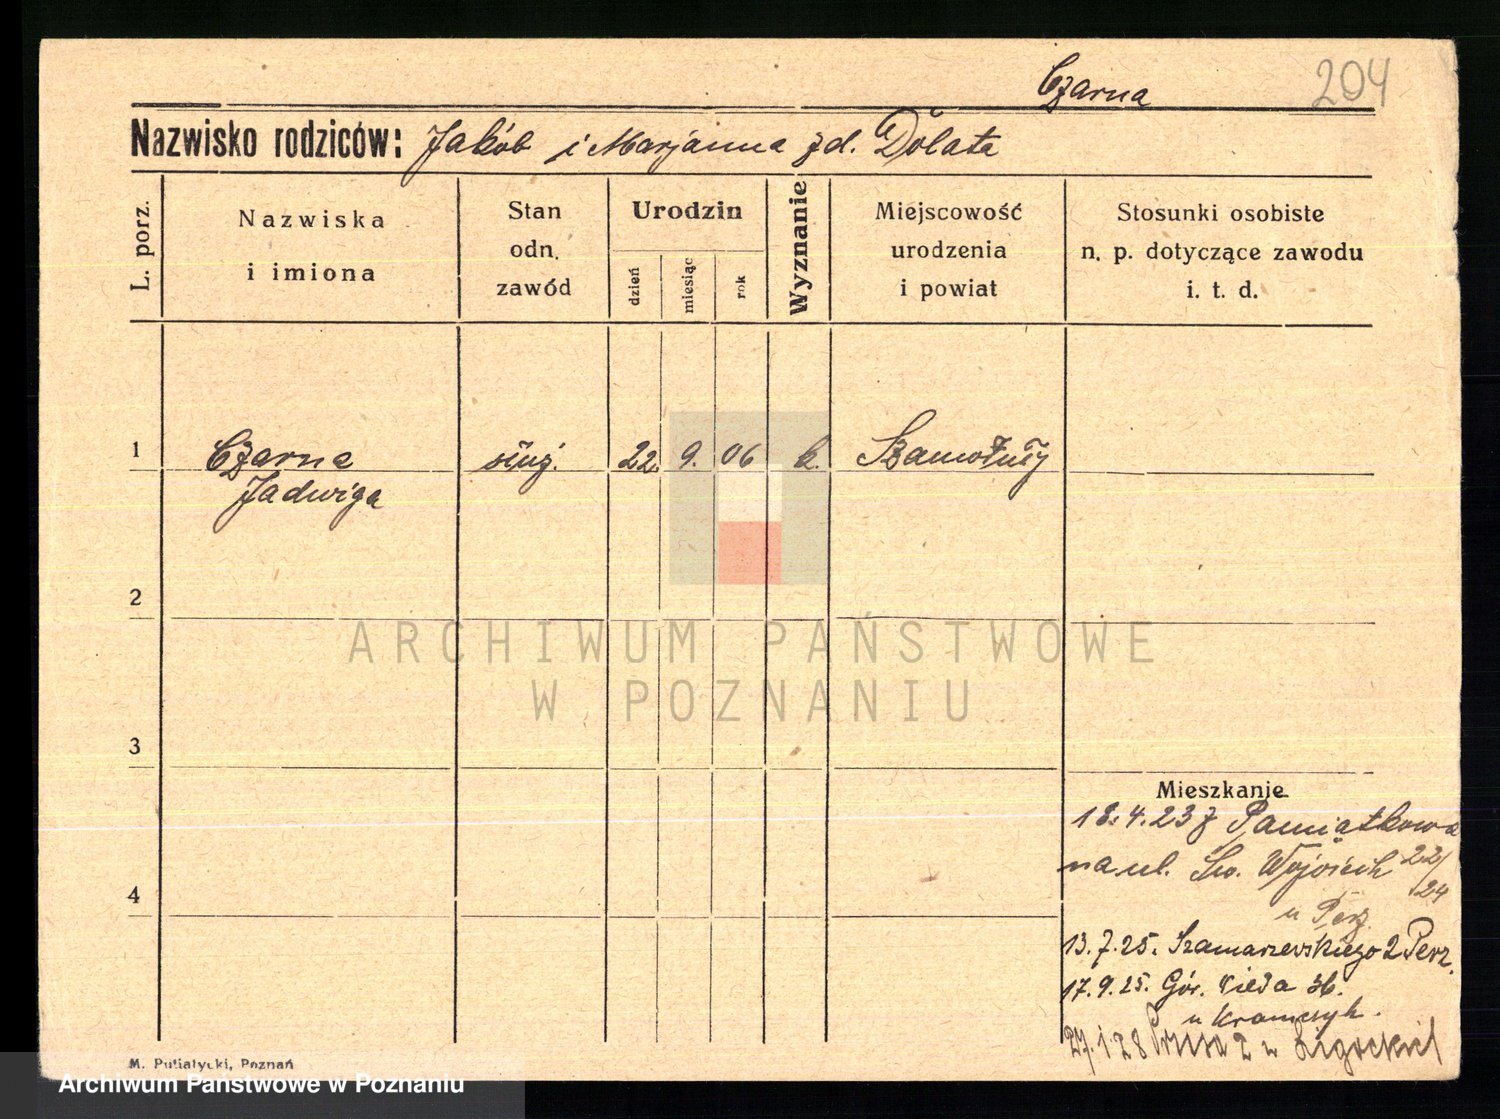 Czarna 204
Nazwisko rodziców: Jakób i Marjanna zd. Dolata
L. porz.
Nazwiska
i imiona
Stan
odn.
zawód
Urodzin
dzień
miesiąc
rok
Wyznanie
Miejscowość
urodzenia
i powiat
Stosunki osobiste
n. p. dotyczące zawodu
i. t. d.
1 Czarna służ. 22. 9. 06 k. Szamotuły
Jadwiga
2
ARCHIWUM PAŃSTWOWE
W POZNANIU
3
Mieszkanie
18.4.23 z Pamiątkowa
na ul. Św. Wojciech 22/24
4
u Perz
13.7.25. Szamarzewskiego 2 Perz.
17.9.25. Gór. Wilda 36.
u
27.1 28 2 u
M. Putiatycki, Poznań
Archiwum Państwowe w Poznaniu